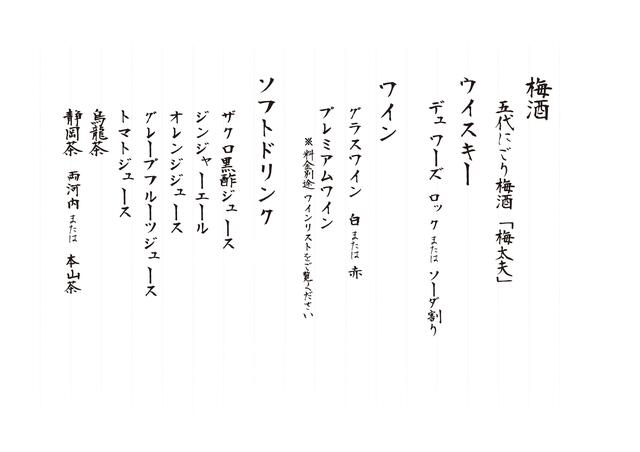 梅酒
五代にごり梅酒「梅太夫」
ウイスキー
デュワーズ ロック または ソーダ割り
ワイン
グラスワイン 白 または 赤
プレミアムワイン
※料金別途 ワインリストをご覧ください
ソフトドリンク
ザクロ黒酢ジュース
ジンジャーエール
オレンジジュース
グレープフルーツジュース
トマトジュース
烏龍茶
静岡茶 両河内 または 本山茶